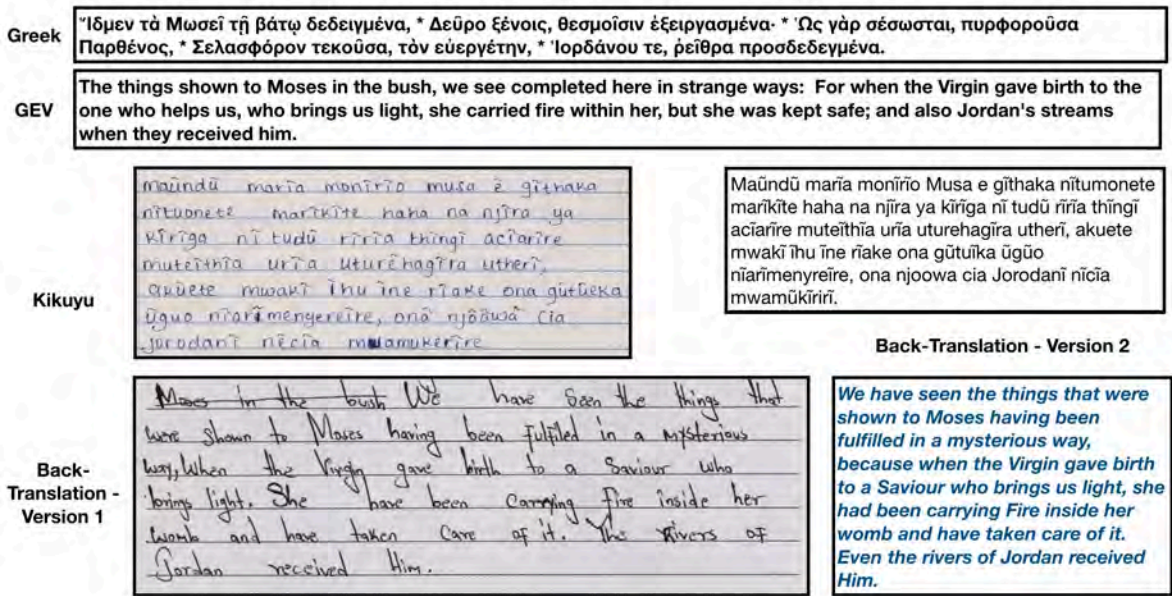 Greek
Ἴδμεν τὰ Μωσεῖ τῇ βάτῳ δεδειγμένα, * Δεῦρο ξένοις, θεσμοῖσιν ἐξειργασμένα· * Ὡς γὰρ σέσωσται, πυρφοροῦσα
Παρθένος, * Σελασφόρον τεκοῦσα, τὸν εὐεργέτην, * Ἰορδάνου τε, ῥεῖθρα προσδεδεγμένα.
GEV
The things shown to Moses in the bush, we see completed here in strange ways: For when the Virgin gave birth to the
one who helps us, who brings us light, she carried fire within her, but she was kept safe; and also Jordan's streams
when they received him.
Kikuyu
maũndũ marĩa monĩrĩo musa ẽ gĩthaka
nĩtuonete marĩkĩte haha na njĩra ya
kĩrĩga nĩ tudũ rĩrĩa thĩngĩ acĩarĩre
muteĩthĩa urĩa uturẽhagĩra utherĩ,
akũete mwakĩ ĩhu ĩne rĩake ona gũtũeka
ũguo nĩarĩmenyereĩre, ona njõõwa cia
jorodanĩ nẽcĩa mwamukẽrĩre
Maũndũ marĩa monĩrĩo Musa e gĩthaka nĩtumonete
marĩkĩte haha na njĩra ya kĩrĩga nĩ tudũ rĩrĩa thĩngĩ
acĩarĩre muteĩthĩa urĩa uturehagĩra utherĩ, akuete
mwakĩ ĩhu ĩne rĩake ona gũtuĩka ũgũo
nĩarĩmenyreĩre, ona njoowa cia Jorodanĩ nĩcĩa
mwamũkĩrirĩ.
Back-Translation - Version 1
Moses in the bush We have seen the things that
were shown to Moses having been fulfiled in a mysterious
way, When the Virgin gave birth to a Saviour who
brings light. She have been carrying fire inside her
womb and have taken care of it. The Rivers of
Jordan received Him.
Back-Translation - Version 2
We have seen the things that were
shown to Moses having been
fulfilled in a mysterious way,
because when the Virgin gave birth
to a Saviour who brings us light, she
had been carrying Fire inside her
womb and have taken care of it.
Even the rivers of Jordan received
Him.